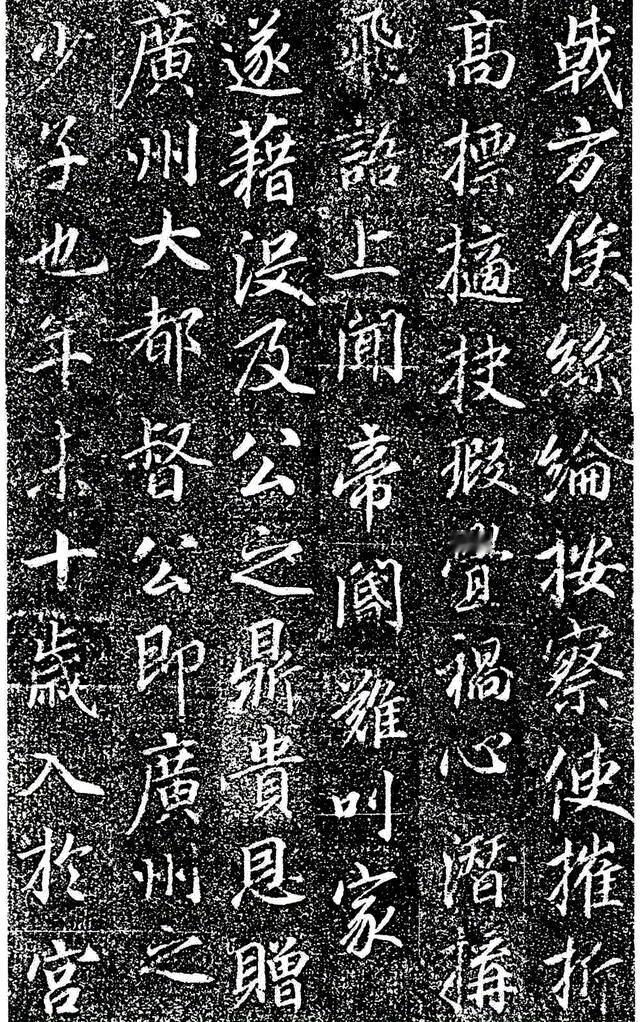 戟方俟絲綸按察使摧折
高標擿抉瑕釁禍心潛搆
飛語上聞帝閽難叫家
遂藉沒及公之鼎貴恩贈
廣州大都督公即廣州之
少子也年未十歲入於宮